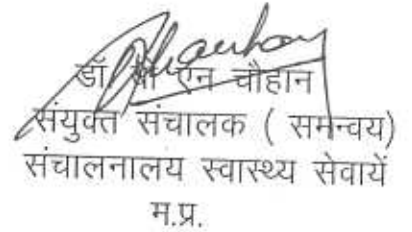 डॉ. एन चौहान
संयुक्त संचालक ( समन्वय)
संचालनालय स्वास्थ्य सेवायें
म.प्र.